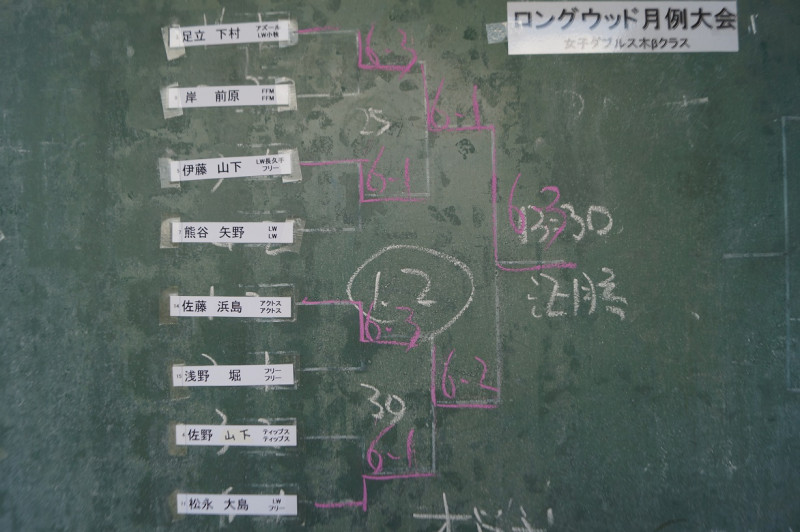 ロングウッド月例大会
女子ダブルス木βクラス
足立 下村 アズール LW小牧
6-3
岸 前原 FFM FFM
25
6-1
伊藤 山下 LW長久手 フリー
6-1
熊谷 矢野 LW LW
13:30
決勝
1.2
佐藤 浜島 アクトス アクトス
6-3
浅野 堀 フリー フリー
6-2
30
佐野 山下 ティップス ティップス
6-1
松永 大島 LW フリー